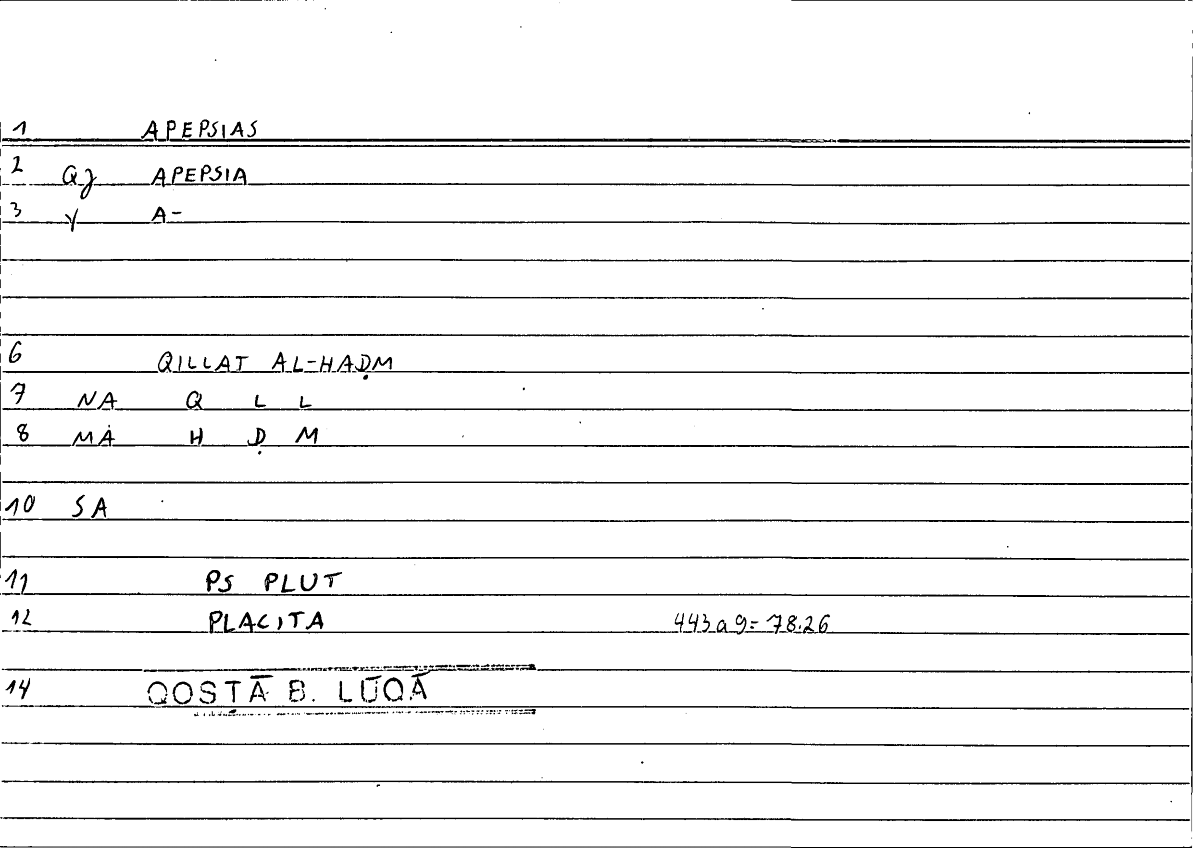 1 APEPSIAS
2 Gj APEPSIA
3 γ A-
6 QILLAT AL-HAḌM
7 NA Q L L
8 MA H Ḍ M
10 SA
11 PS PLUT
12 PLACITA 443a9=78.26
14 QOSTĀ B. LŪQĀ